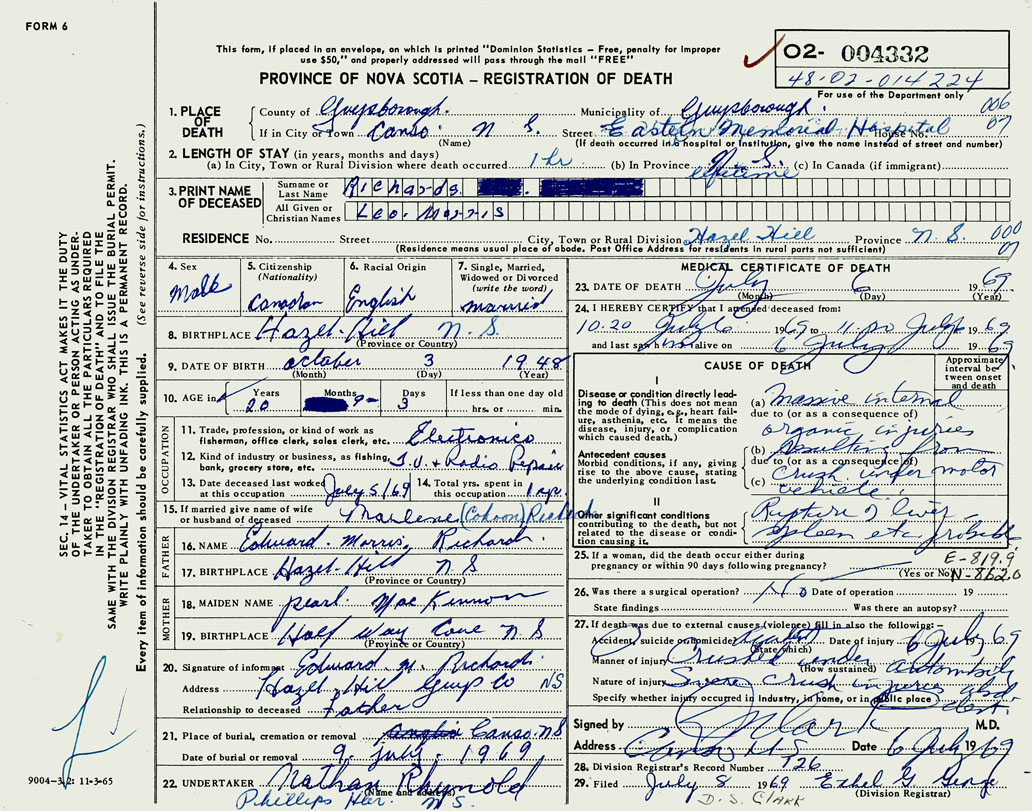 FORM 6
This form, if placed in an envelope, on which is printed "Dominion Statistics – Free, penalty for improper
use $50," and properly addressed will pass through the mail "FREE"
PROVINCE OF NOVA SCOTIA – REGISTRATION OF DEATH
02- 004332
48-02-014224
For use of the Department only
SEC. 14 – VITAL STATISTICS ACT MAKES IT THE DUTY
OF THE UNDERTAKER OR PERSON ACTING AS UNDER-
TAKER TO OBTAIN ALL THE PARTICULARS REQUIRED
IN THE "REGISTRATION OF DEATH" AND TO FILE THE
SAME WITH THE DIVISION REGISTRAR WHO SHALL ISSUE THE BURIAL PERMIT.
WRITE PLAINLY WITH UNFADING INK. THIS IS A PERMANENT RECORD.
Every item of information should be carefully supplied. (See reverse side for instructions.)
1. PLACE OF DEATH County of Guysborough Municipality of Guysborough 006
If in City or Town Canso N S. Street Eastern Memorial Hospital House No. 07
(Name) (If death occurred in hospital or institution, give the name instead of street and number)
2. LENGTH OF STAY (in years, months and days)
(a) In City, Town or Rural Division where death occurred 1 hr (b) In Province N. S. lifetime (c) In Canada (if immigrant)
3. PRINT NAME OF DECEASED Surname or Last Name Richards
All Given or Christian Names Leo Morris
RESIDENCE No. Street City, Town or Rural Division Hazel Hill Province N. S. 000
(Residence means usual place of abode. Post Office Address for residents in rural parts not sufficient) 07
4. Sex Male
5. Citizenship (Nationality) Canadian
6. Racial Origin English
7. Single, Married, Widowed or Divorced (write the word) married
8. BIRTHPLACE Hazel-Hill N. S.
(Province or Country)
9. DATE OF BIRTH october 3 1948
(Month) (Day) (Year)
10. AGE in Years 20 Months 9 Days 3 If less than one day old hrs. or min.
OCCUPATION
11. Trade, profession, or kind of work as fisherman, office clerk, sales clerk, etc. Electronics
12. Kind of industry or business, as fishing, bank, grocery store, etc. T.V. & Radio Repair
13. Date deceased last worked at this occupation July 5/69 14. Total yrs. spent in this occupation 1 yr.
15. If married give name of wife or husband of deceased Marlene (Cohoon) Richards
FATHER
16. NAME Edward Morris Richards
17. BIRTHPLACE Hazel-Hill N S
(Province or Country)
MOTHER
18. MAIDEN NAME pearl Mac Kinnon
19. BIRTHPLACE Half Way Cove N S
(Province or Country)
20. Signature of informant Edward M. Richards
Address Hazel Hill Guys Co NS
Relationship to deceased Father
21. Place of burial, cremation or removal Canso. N S
Date of burial or removal 9. July. 1969
22. UNDERTAKER Nathan Rhynold
(Name and address)
Phillips Har. N S.
9004-3.2: 11-3-65
MEDICAL CERTIFICATE OF DEATH
23. DATE OF DEATH July 6 1969
(Month) (Day) (Year)
24. I HEREBY CERTIFY that I attended deceased from:
10.20 July 6 1969 to 11.20 July 6 1969
and last saw him alive on 6 July 1969
CAUSE OF DEATH
Approximate interval between onset and death
I
Disease or condition directly leading to death (This does not mean the mode of dying, e.g., heart failure, asthenia, etc. It means the disease, injury, or complication which caused death.)
(a) Massive internal
due to (or as a consequence of)
organic injuries
Antecedent causes
Morbid conditions, if any, giving rise to the above cause, stating the underlying condition last.
(b) resulting from
due to (or as a consequence of)
(c) Crush under motor
vehicle
II
Other significant conditions
contributing to the death, but not related to the disease or condition causing it.
Rupture of liver –
spleen etc probable
25. If a woman, did the death occur either during
pregnancy or within 90 days following pregnancy? (Yes or No)
E-819.9
N-862.0
26. Was there a surgical operation? No Date of operation 19
State findings Was there an autopsy?
27. If death was due to external causes (violence) fill in also the following:–
Accident, suicide or homicide (State which) Date of injury 6 July 1969
Manner of injury Crushed under automobile
(How sustained)
Nature of injury Severe crush injuries abd
Specify whether injury occurred in industry, in home, or in public place
Signed by Clark M.D.
Address Canso N.S. Date 6 July 1969
28. Division Registrar's Record Number 726
29. Filed July 8 1969 Ethel G George
(Division Registrar)
D. S. CLARK